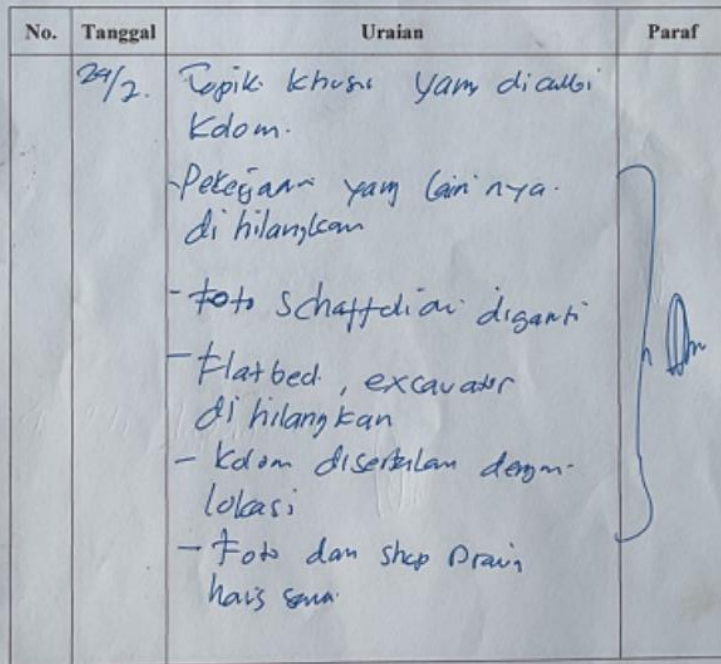 No. Tanggal Uraian Paraf
29/2. Topik khusus yang diambi
Kolom.
- Pekerjaan yang lainnya.
di hilangkan
- Foto schaffolding diganti
- Flatbed, excavator
di hilangkan
- Kolom disertakan dengan
lokasi
- Foto dan shop Drawing
harus sama.